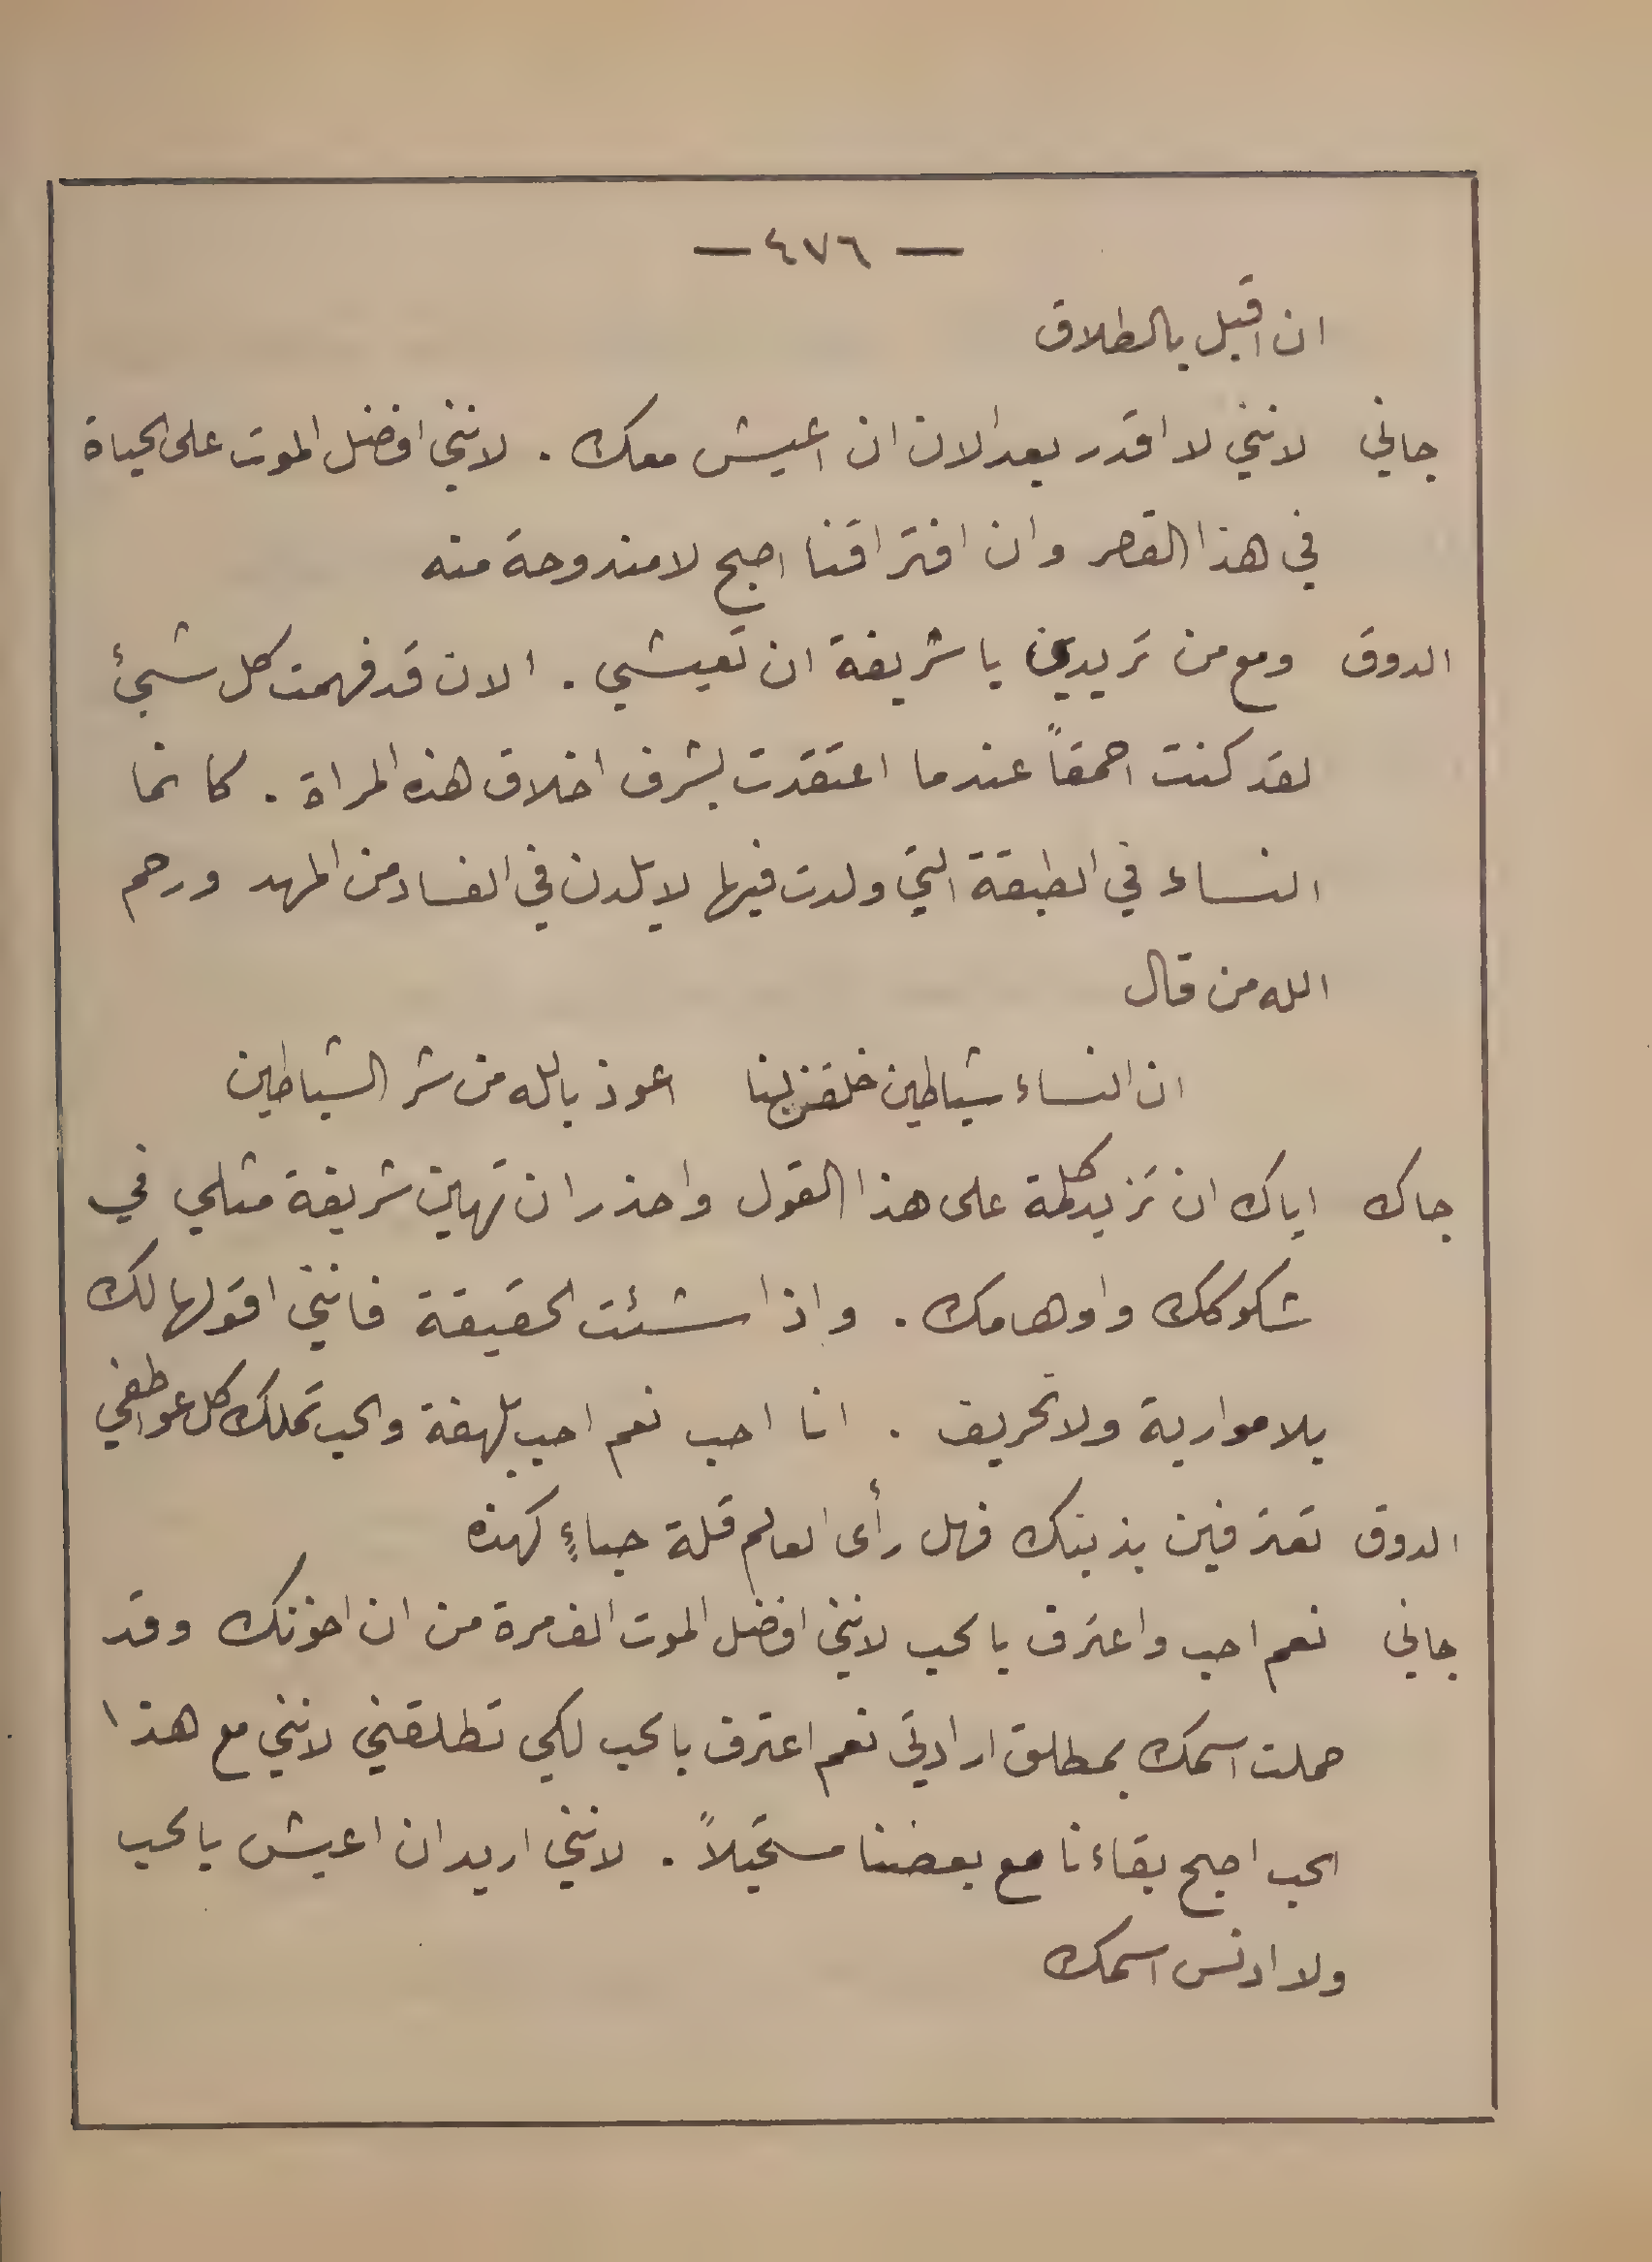 — ٤٧٦ —
ان اقبل بالطلاق
جاني لانني لا اقدر بعد الان ان اعيش معك . لانني افضل الموت على الحياة
في هذا القصر وان افتراقنا اصبح لا مندوحة منه
الدوق ومع من تريدين يا شريفة ان تعيشي . الان قد فهمت كل شيئ
لقد كنت احمقاً عندما اعتقدت بشرف اخلاق هذه المراة . كانما
النساء في الطبقة التي ولدت فيها لا يلدن في الفساد من المهد ورحم
الله من قال
ان النساء شياطين خلقن لنا اعوذ بالله من شر الشياطين
جاك اياك ان تزيد كلمة على هذا القول واحذر ان تهين شريفة مثلي في
شكوكك واوهامك . واذا شئت الحقيقة فانني اقولها لك
بلا مواربة ولا تحريف . انا احب نعم احب بلهفة والحب تملك كل عواطفي
الدوق تعترفين بذنبك فهل رأى العالم قلة حياءٍ كهذه
جاني نعم احب واعترف بالحب لانني افضل الموت الف مرة من ان اخونك وقد
حملت اسمك بمطلق ارادتي نعم اعترف بالحب لكي تطلقني لانني مع هذا
الحب اصبح بقاءنا مع بعضنا مستحيلاً . لانني اريد ان اعيش بالحب
ولا ادنس اسمك